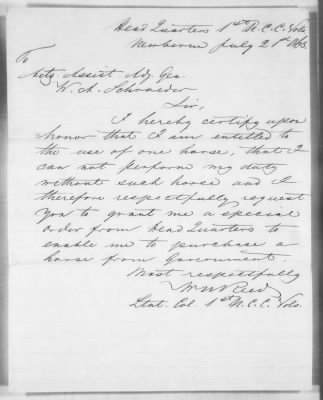 Head Quarters 1st N. C. C. Vols
Newberne July 21st 1863.
To
Actg. Assist Adj. Gen.
W. A. Schroeder
Sir,
I hereby certify upon
honor that I am entitled to
the use of one horse, that I
can not perform my duty
without such horse and I
therefore respectfully request
You to grant me a special
order from Head Quarters to
enable me to purchase a
horse from Government.
Most respectfully
Wm N Reed
Lieut. Col. 1st N. C. C. Vols.